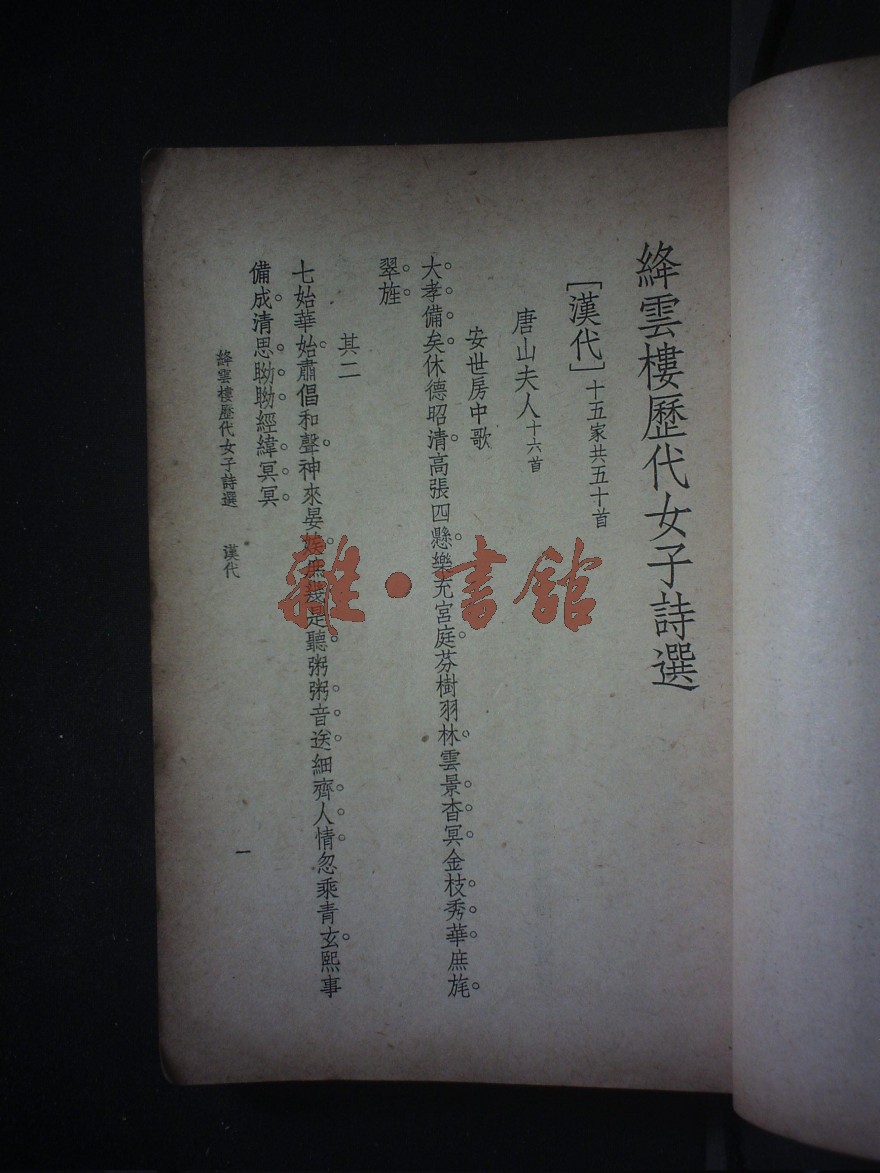 絳雲樓歷代女子詩選
［漢代］十五家共五十首
唐山夫人十六首
安世房中歌
大孝備矣休德昭清高張四懸樂充宮庭芬樹羽林雲景杳冥金枝秀華庶旄
翠旌
其二
七始華始肅倡和聲神來晏娭庶幾是聽粥粥音送細齊人情忽乘青玄熙事
備成清思眑眑經緯冥冥
絳雲樓歷代女子詩選 漢代
一
雜·書館